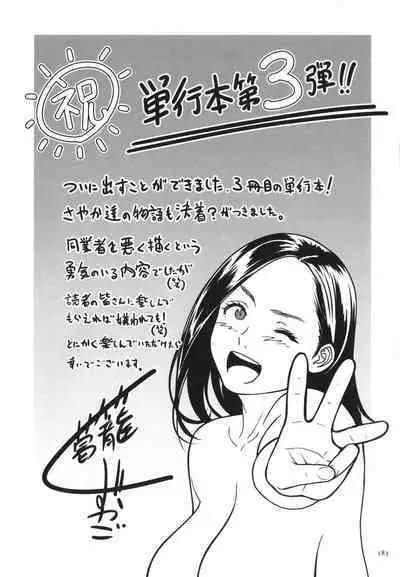 祝
単行本第3弾!!
ついに出すことができました、3冊目の単行本!
さやか達の物語も決着?がつきました。
同業者を悪く描くという
勇気のいる内容でしたが(笑)
読者の皆さんに楽しんで
もらえれば嫌われても!(笑)
とにかく楽しんでいただけたら
幸いでございます。
183